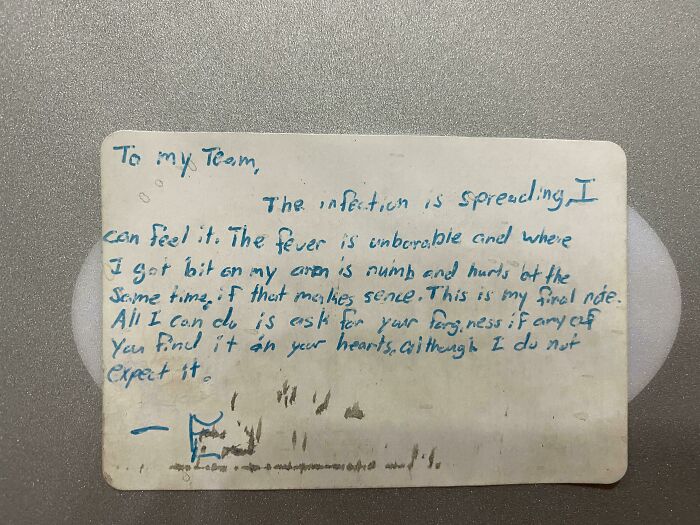 To my Team,
The infection is spreading, I
can feel it. The fever is unborable and where
I got bit on my arm is numb and hurts at the
same time, if that makes sence. This is my final note.
All I can do is ask for your forgivness if any of
you find it in your hearts, although I do not
expect it.